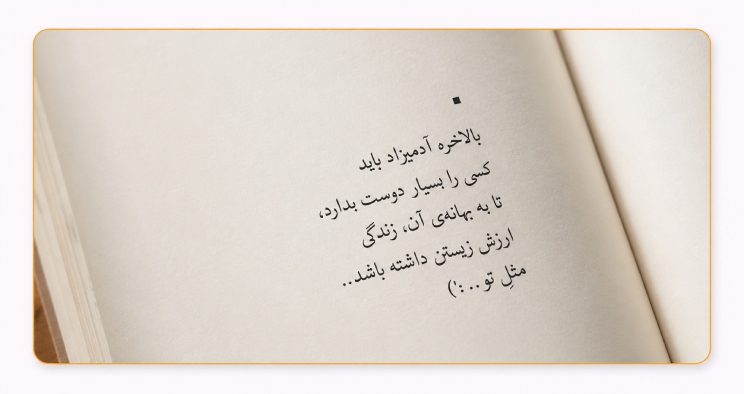 ▪
بالاخره آدمیزاد باید
کسی را بسیار دوست بدارد،
تا به بهانه‌ی آن، زندگی
ارزش زیستن داشته باشد..
مثلِ تو..:')